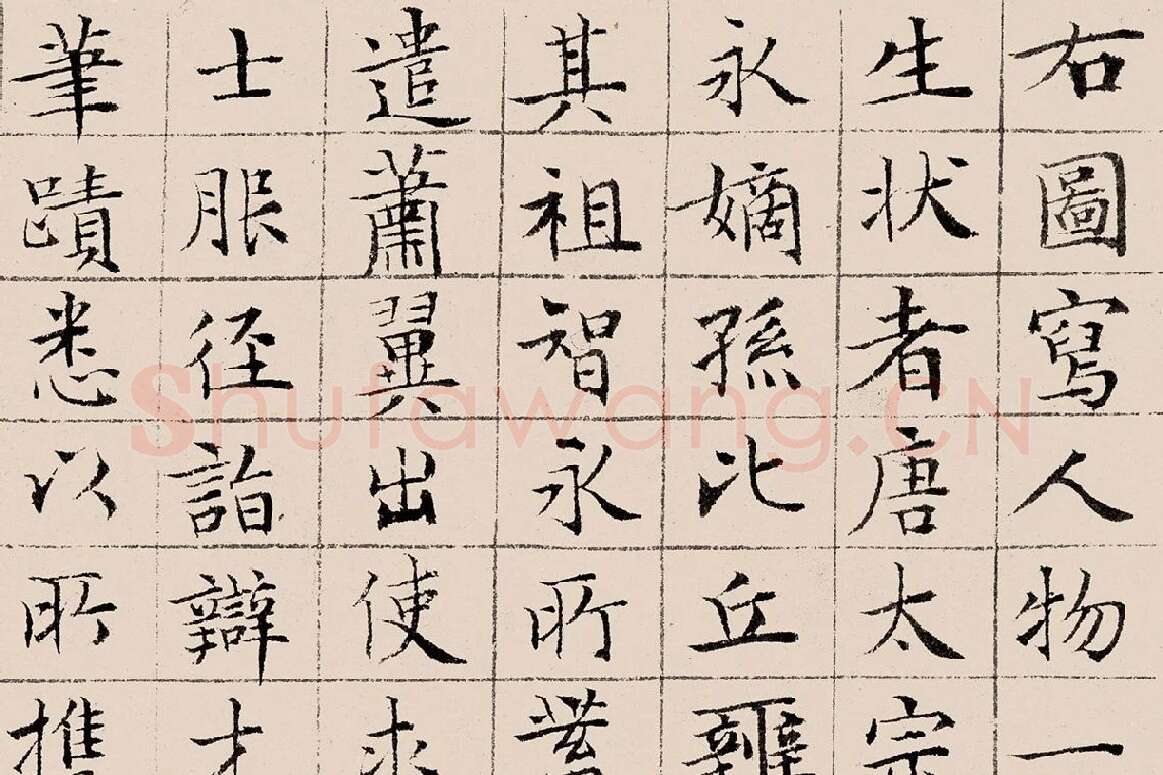 右圖寫人物一
生状者唐太宗
永嫡孫比丘
其祖智永所蓄
遣蕭翼出使求
士服径詣辯才
筆蹟悉以所携
Shufawang.CN